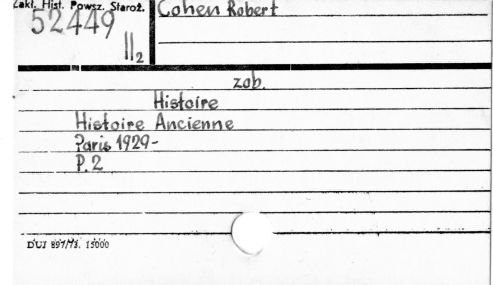 Zakł. Hist. Powsz. Staroż.
52449
II2
Cohen Robert
zob.
Histoire
Histoire Ancienne
Paris 1929-
P. 2
DUJ 897/73. 15000